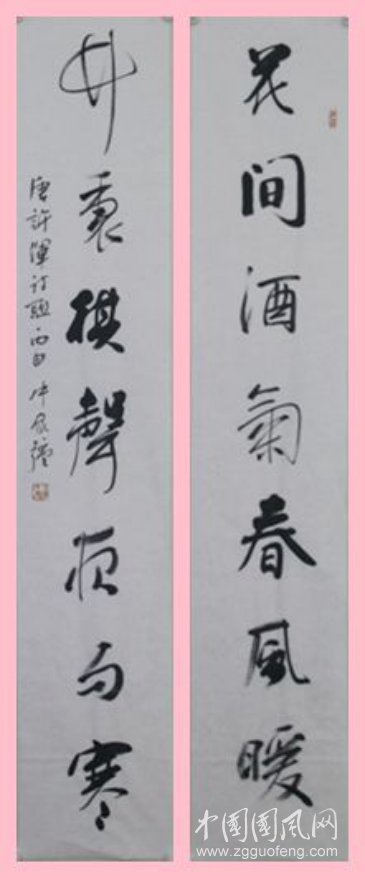 花间酒氣春風暖
竹裏棋聲夜雨寒
唐許渾詩聯
中國國風网
www.zgguofeng.com